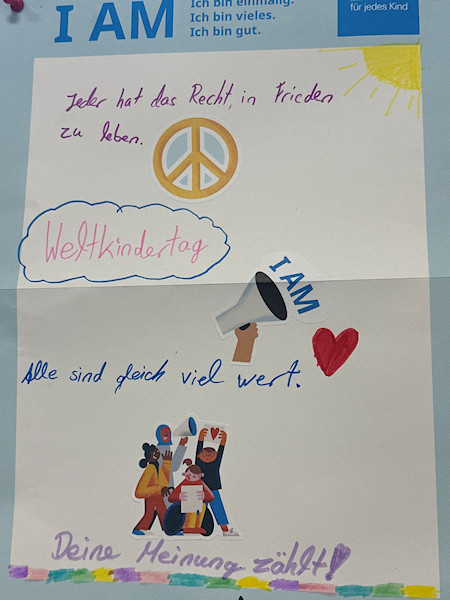 I AM
Ich bin einmalig.
Ich bin vieles.
Ich bin gut.
für jedes Kind
Jeder hat das Recht, in Frieden
zu leben.
Weltkindertag
I AM
Alle sind gleich viel wert.
Deine Meinung zählt!